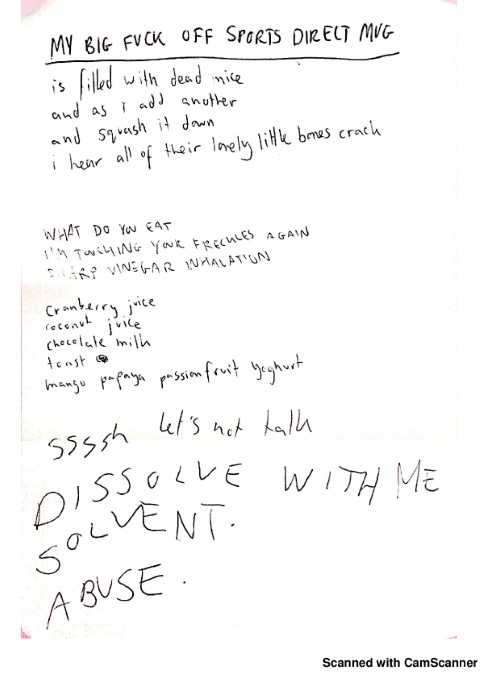 MY BIG FUCK OFF SPORTS DIRECT MUG
is filled with dead mice
and as i add another
and squash it down
i hear all of their lovely little bones crack
WHAT DO YOU EAT
I'M TOUCHING YOUR FRECKLES AGAIN
SHARP VINEGAR INHALATION
Cranberry juice
coconut juice
chocolate milk
toast
mango papaya passionfruit yoghurt
ssssh let's not talk
DISSOLVE WITH ME
SOLVENT.
ABUSE.
Scanned with CamScanner